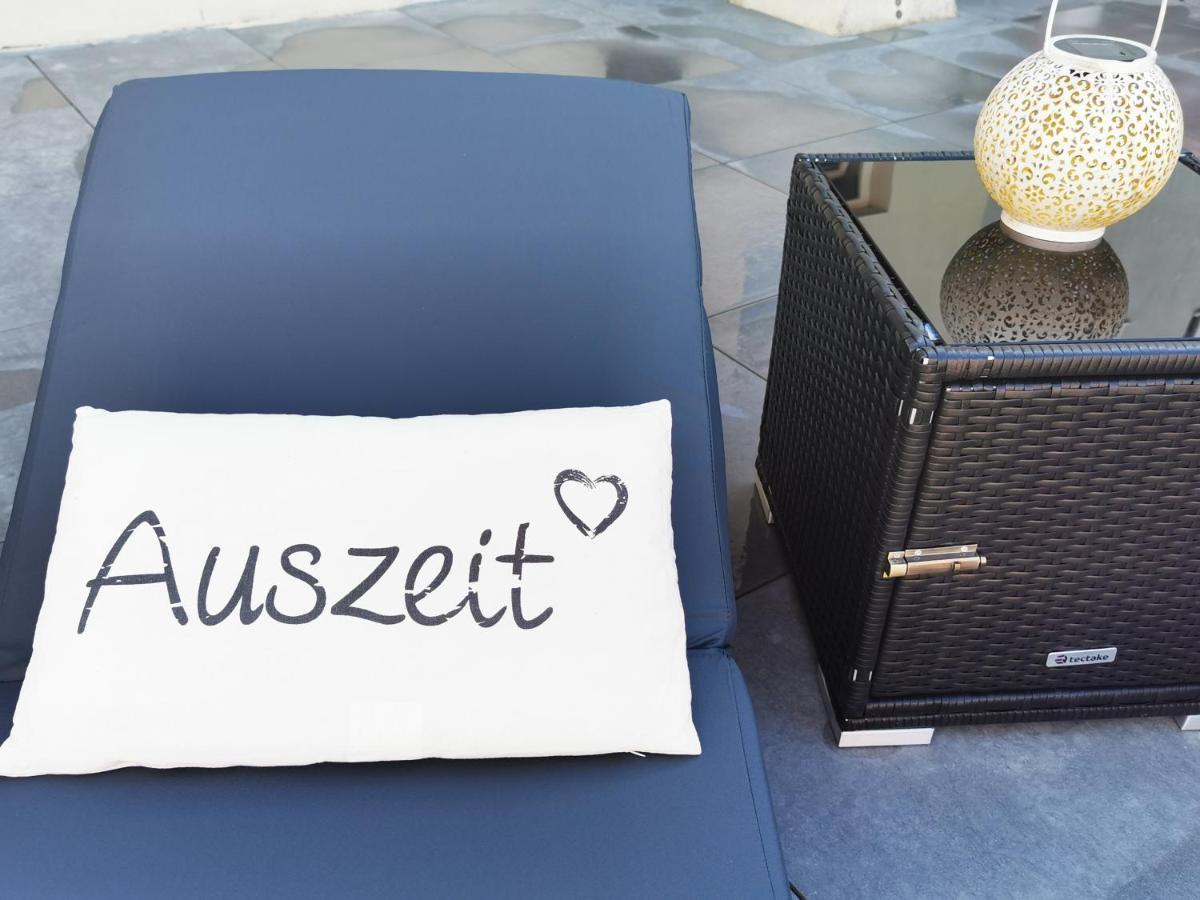 Auszeit
tectake